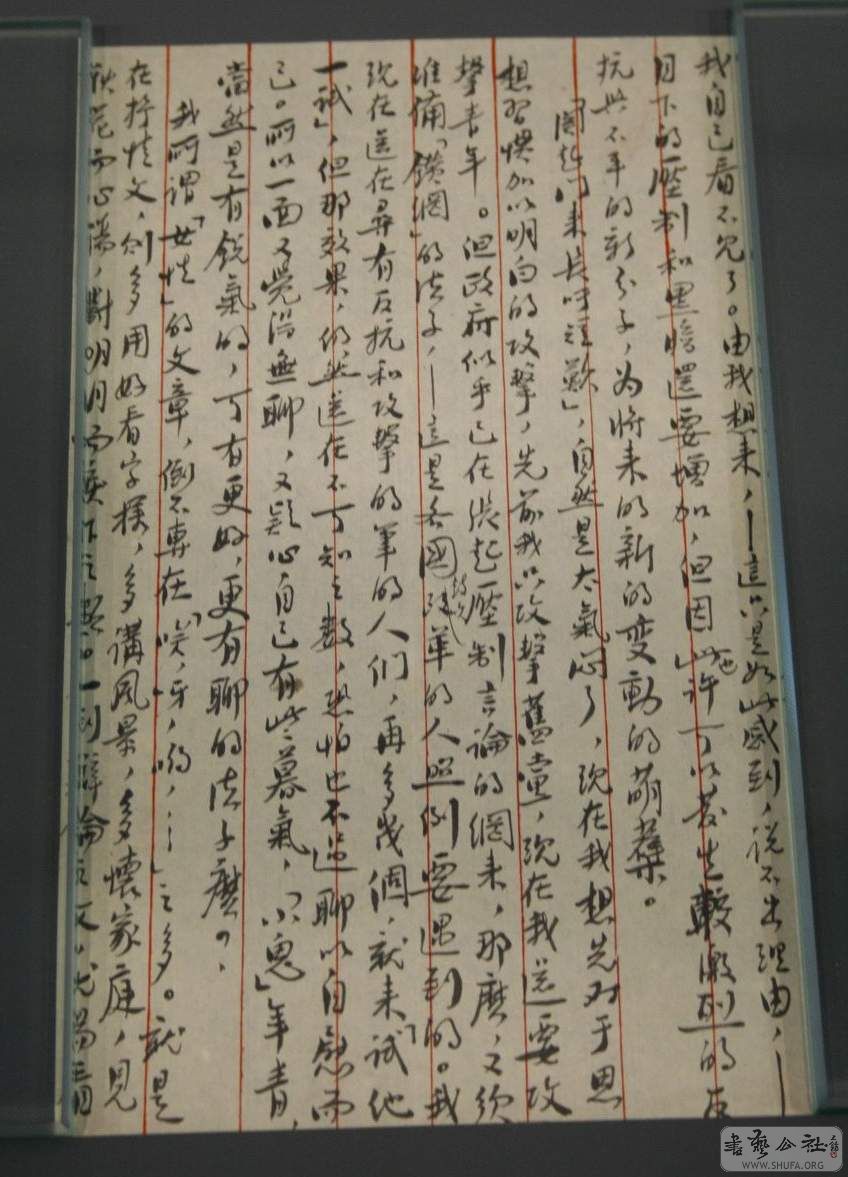 我自己看不見了。由我想来,——這只是如此感到,說不出理由,——
目下的壓制和黑暗還要增加,但因此也許可以發生較激烈的反
抗與不平的新分子,为將来的新的变動的萌蘖。
「關起門来長吁短歎」,自然是太氣悶了,現在我想先对于思
想習慣加以明白的攻擊,先前我只攻擊舊黨,現在我還要攻
擊青年。但政府似乎已在張起壓制言論的網来,那麽,又須
准備「鑽網」的法子,——這是各國鼓吹改革的人照例要遇到的。我
現在還在尋有反抗和攻擊的筆的人们,再多幾個,就来「試他
一試」,但那效果,仍然還在不可知之數,恐怕也不過聊以自慰而
已。所以一面又覺得無聊,又疑心自己有些暮氣,「小鬼」年青,
當然是有銳氣的,可有更好,更有聊的法子麽?
我所謂「女性」的文章,倒不專在「唉,呀,喲,……」之多。就是
在抒情文,則多用好看字樣,多講風景,多懷家庭,見
秋花而心傷,對明月而淚下之類。一到辯論之文,尤易
書藝公社
WWW.SHUFA.ORG